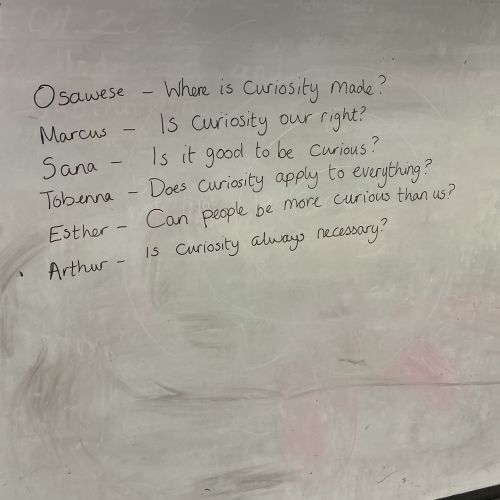 Osawese - Where is Curiosity made?
Marcus - Is Curiosity our right?
Sana - Is it good to be curious?
Tobenna - Does curiosity apply to everything?
Esther - Can people be more curious than us?
Arthur - Is curiosity always necessary?